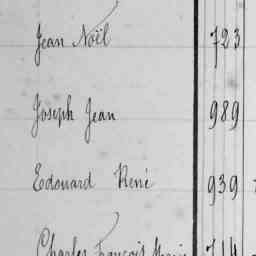 Jean Noël 723
Joseph Jean 989
Edouard René 939
Charles François Marie 714